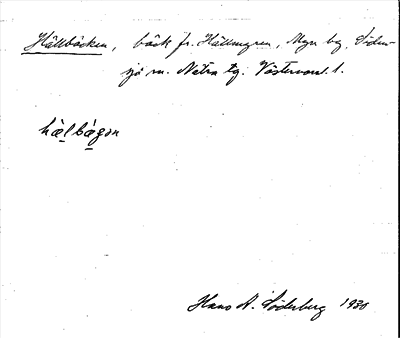 Hällbäcken, bäck fr. Hällmyren, Myre by, Siden-
sjö sn. Nätra tg. Västernorrl. l.
hälbägen
Hans A. Söderberg 1930